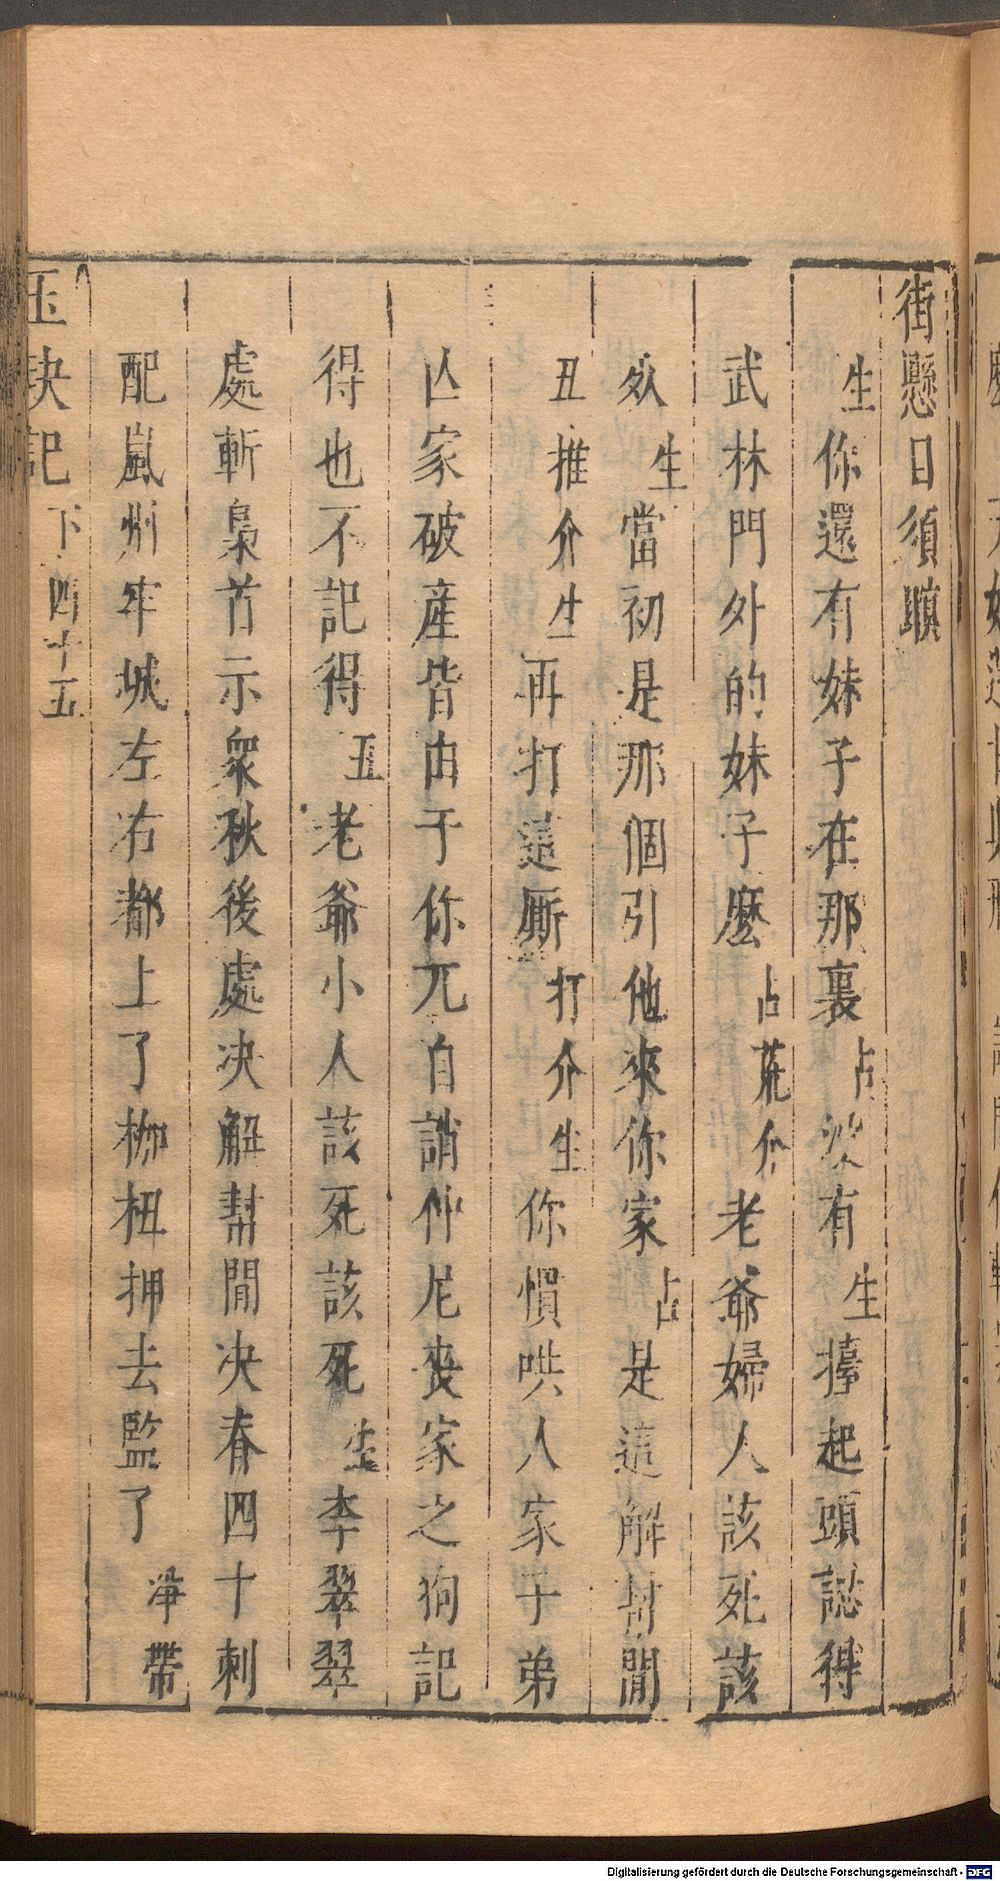 街懸日須瞋
生你還有妹子在那裏占沒有生擡起頭認得
武林門外的妹子麽占荒介老爺婦人該死該
死生當初是那個引他來你家占是這解幇閒
丑推介生再打這厮打介生你慣哄人家子弟
亾家破産皆由于你兀自誚仲尼喪家之狗記
得也不記得丑老爺小人該死該死生李翠翠
處斬梟首示衆秋後處决解幇閒决春四十刺
配嵐州牢城左右都上了枷杻押去監了淨帶
玉玦記 下 四十五
Digitalisierung gefördert durch die Deutsche Forschungsgemeinschaft - DFG